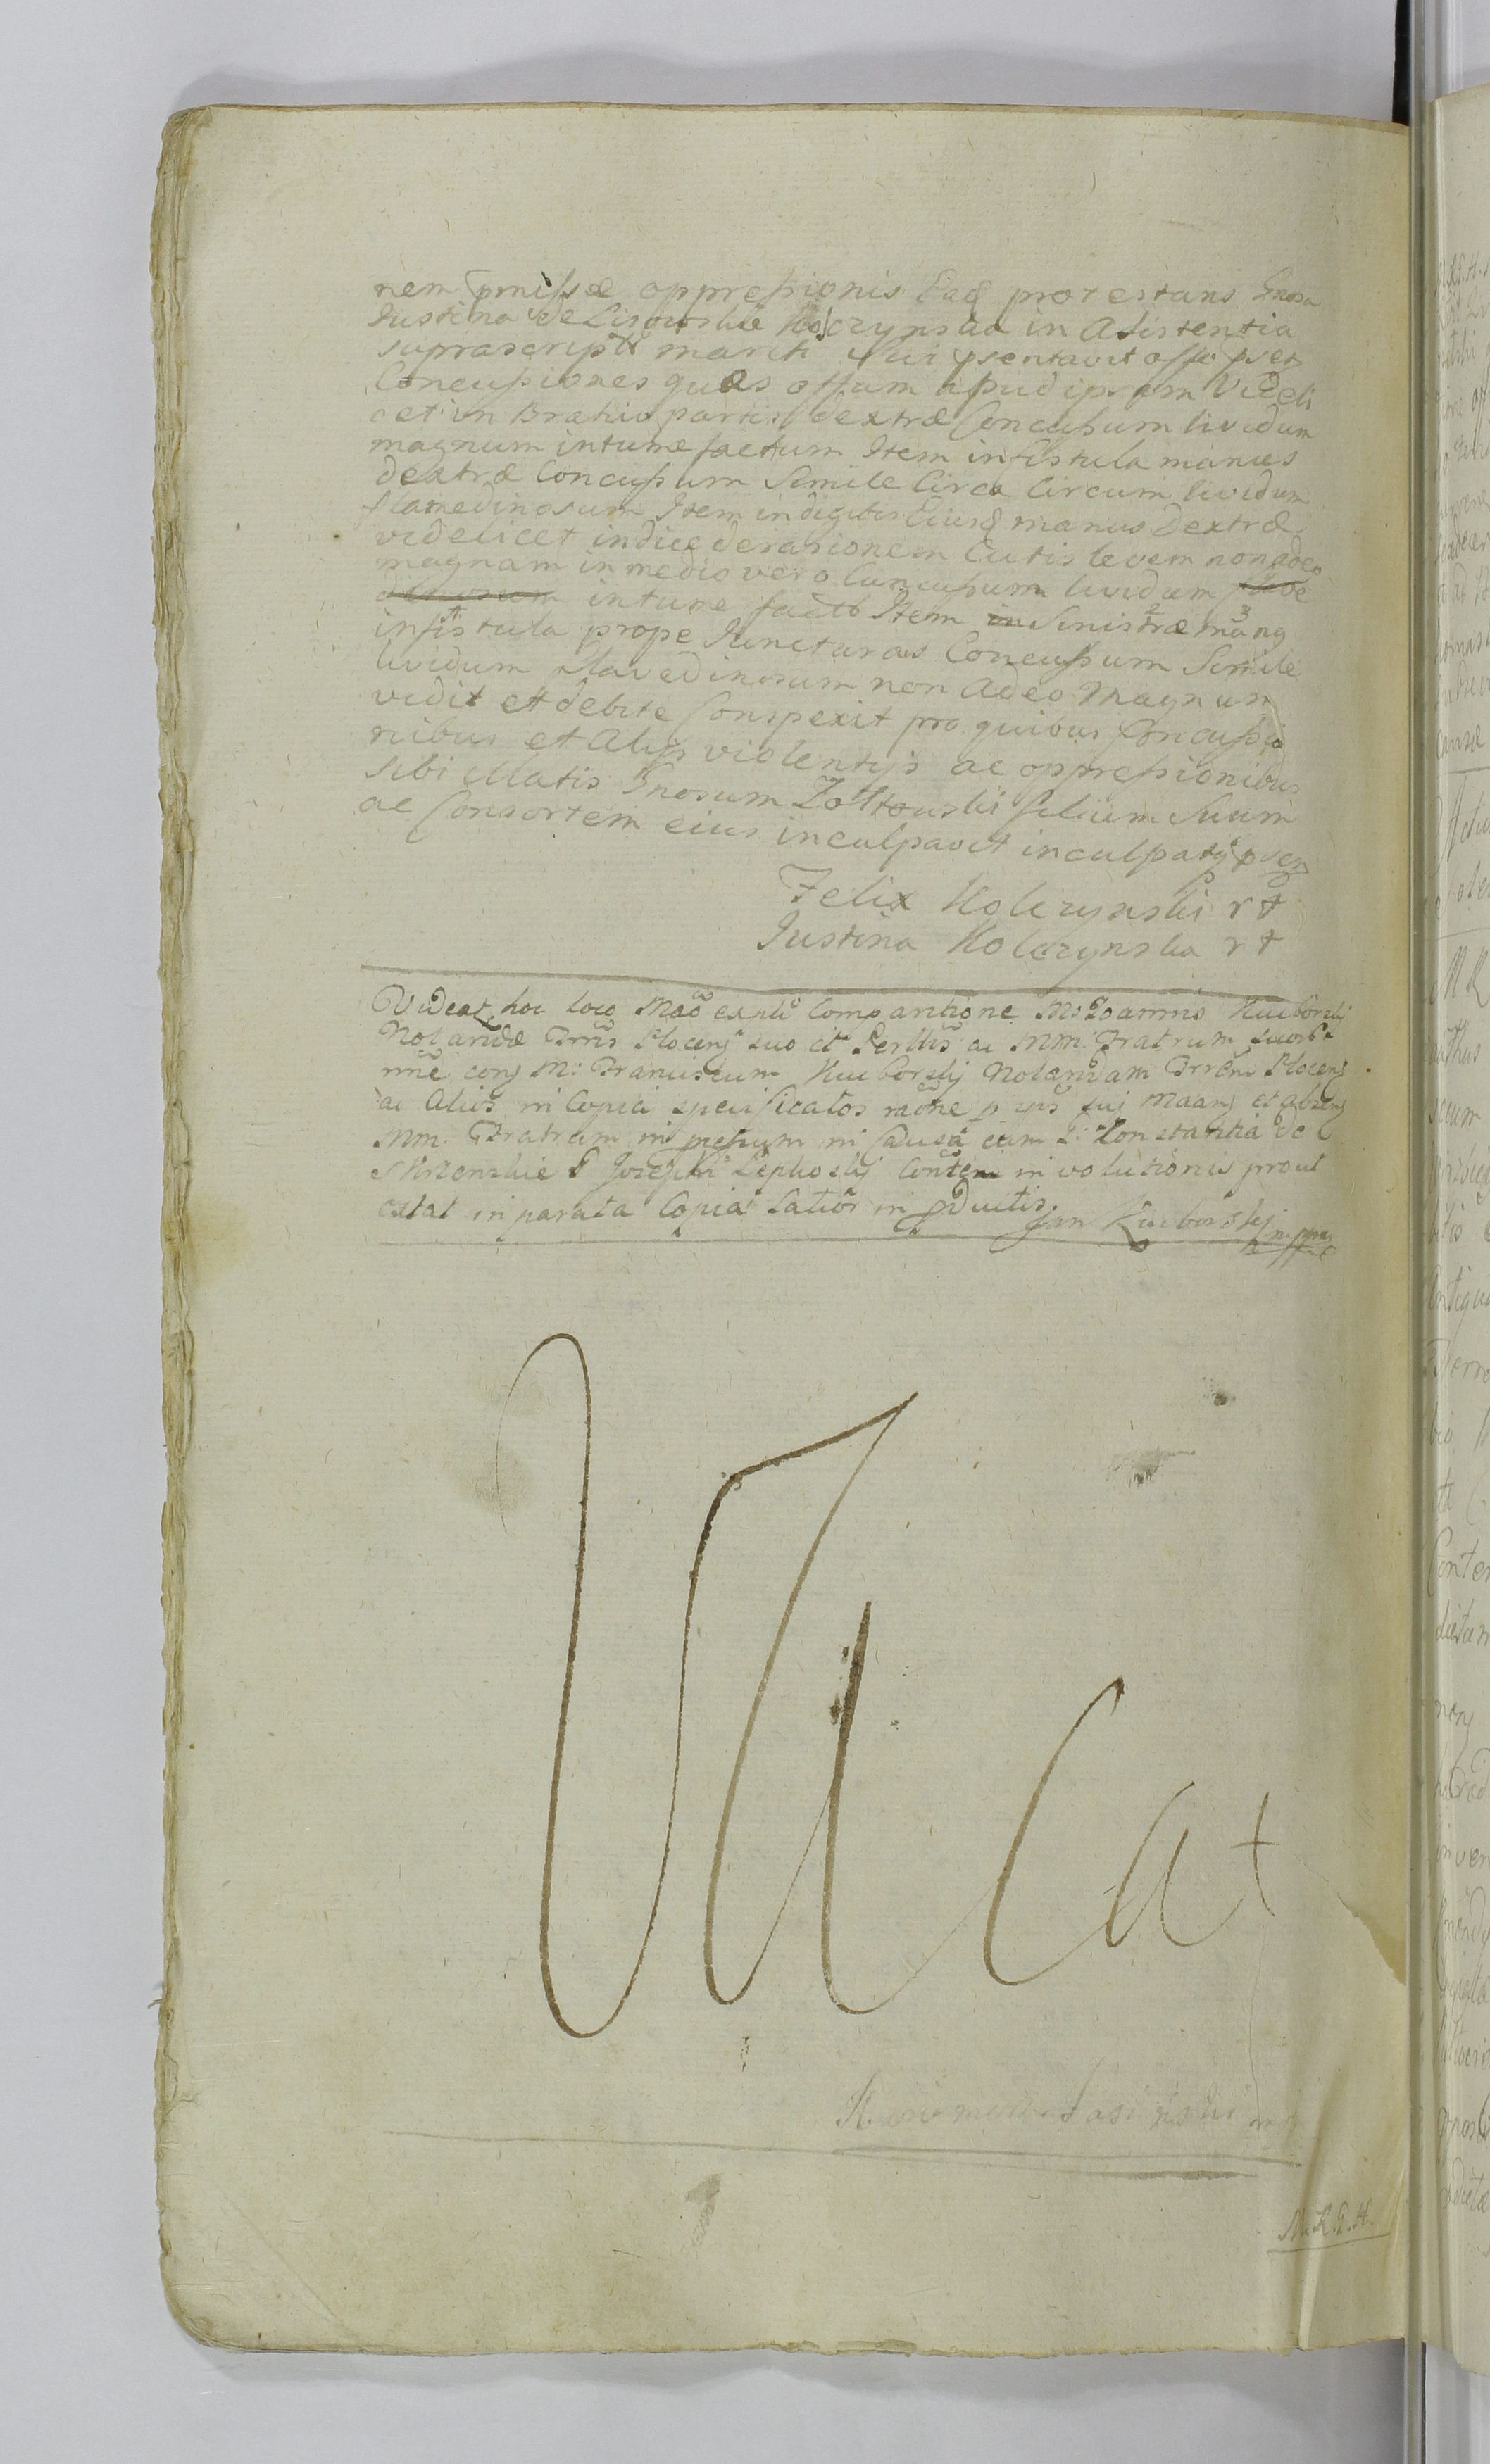 nem pmissæ oppressionis Eadq protestans Gnosa
Justina de Lisowskie Kolczynska in Asistentia
suprascripti mariti sui psentavit offo pset
Concussiones quas offum apud ipsam Videli
cet in Brahio partis dextræ Concussum lividum
magnum intume factum Item in fistula manus
dextræ Concussum Simile Circa Circum lividum
flavedinosum Item in digitis Eiusd manus Dextræ
videlicet indice derasionem Cutis levem non adeo
magnam in medio vero Concussum lividum
intume facto Item in Sinistræ manq
in fistula prope Juncturas Concussum Simile
lividum flavedinosum non Adeo Magnum
vidit et debite Conspexit pro quibus Concussio
nibus et Alijs violentijs ac oppressionibus
sibi illatis Gnosum Zołtowski filium Suum
ac Consortem eius inculpavit inculpatq psen
Felix Kolczynski r t
Justina Kolczynska r t
Videat hoc loco Comparitione M: Joannis Kucborskj
Notaridæ Plocens suo et ac MM: Fratrum suor
nne cong M: Franciscum Kucborskj Notaridam Plocens
ac Alios in Copia specificatos et absens
MM. Fratrum in in Causa cum Constantia de
Josephi involutionis prout
extat in parata Copia latior in pductis.
Jan Kucborskj mppa
VACat
M. R. P. H.